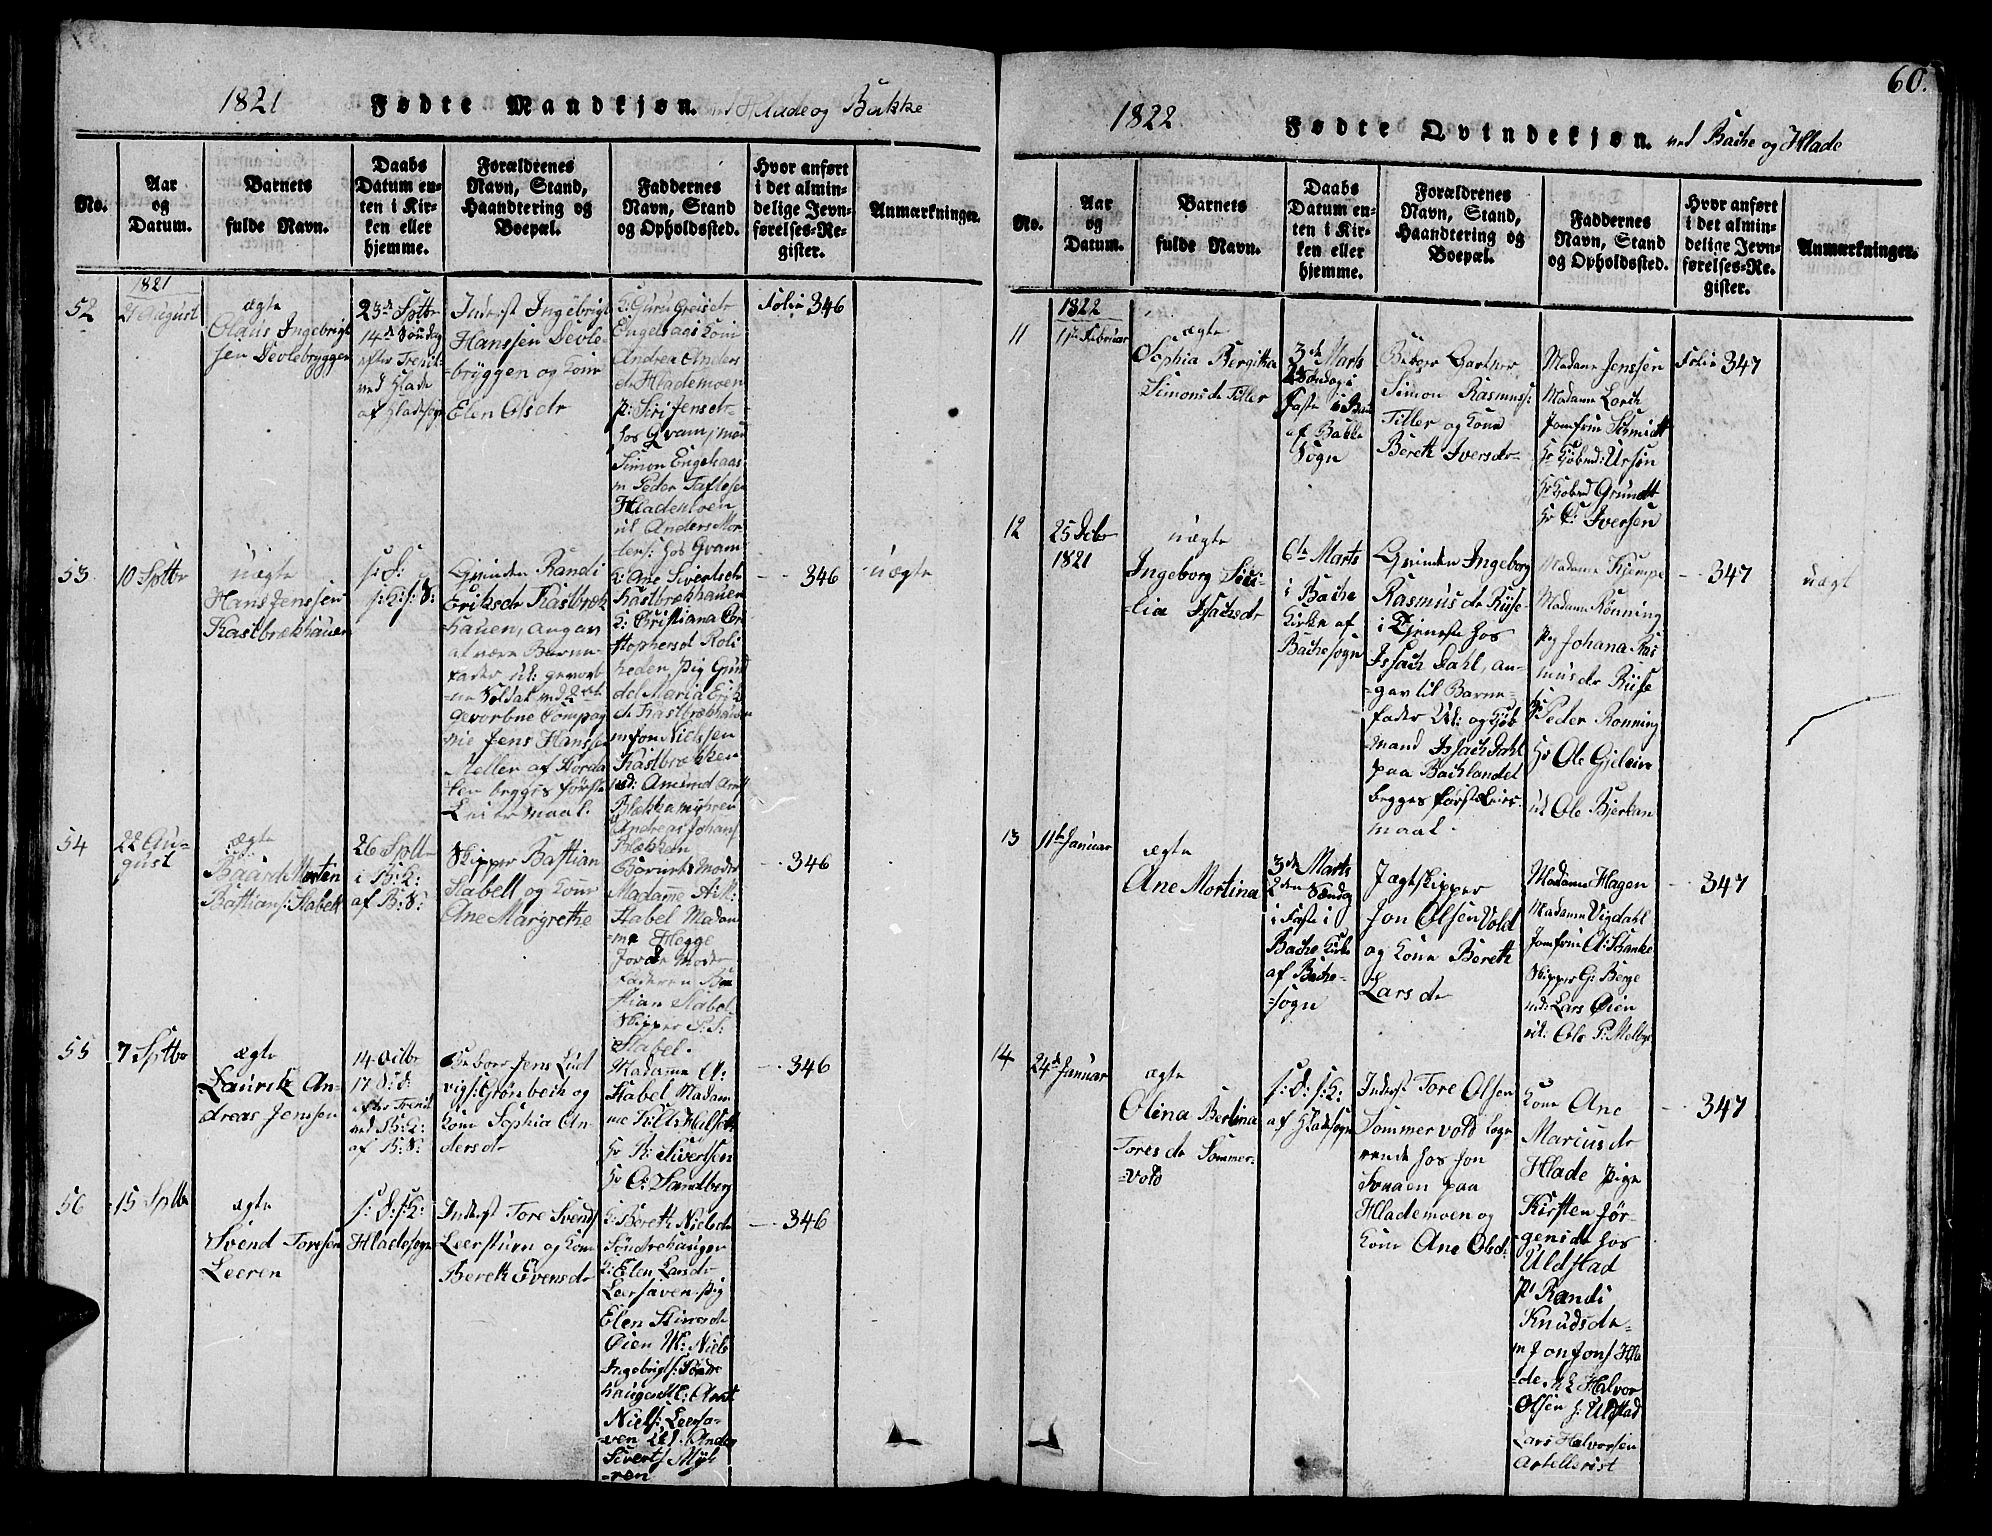 1821 Fødte Mandkjøn. Hlade og Bakke
No.
Aar
og
Datum.
Barnets
fulde Navn.
Daabs
Datum en-
ten i Kir-
ken eller
hjemme.
Forældrenes
Navn, Stand,
Haandtering og
Boepæl.
Faddernes
Navn, Stand
og Opholdssted.
Hvor anført
i det almin-
delige Jevn-
førelses-Re-
gister.
Anmærkninger.
1821
52
August
ægte
Olaus Ingebrigt
sen Devlebryggen
23de Sptbr
14de Søndag
efter Trenit
ved Hlade
af Hladesogn
Inderst Ingebrigt
Hanssen Devle-
bryggen og Kone
Elen Olsdr
Andrea Anders
dr Hlademoen
p: Siri Jensdr
hos Qvam
Simon Engelsaas
Hlademoen
Anders Mor
tens: hos Qvam
Folie 346
53
10 Sptbr
uægte
Hans Jenssen
Kastbrekhauen
s: D:
s: K: s: S:
Qvinden Randi
Eriksdr Kastbrek
hauen, angav
at være Barne-
fader gevorb
ne Soldat ved 2det
gevorbne Compag
nie Jens Hanssen
Meller af Horda
len begges første
Leiermaal.
K: Ane Sivertsdr
Kastbrekhauen
K: Cristiana Cri
stophersd Roli
heden
Maria Erik
dr Kastbrekhauen
Kastbrekken
Andreas Johans
Blekken
346
uægte
54
22 Au-
gust
ægte
Baard Morten
Bastians: Stabell
26 Sptbr
i B: K:
af B: S:
Skipper Bastian
Stabell og Kone
Ane Margrethe
Barnets Moder
Madame
Stabel Madam
me Hegge
Skipper
Stabel.
346
55
7 Sptbr
ægte
Lauritz An-
dreas Jenssen
14 Octbr
17 S: d:
efter Trenit
ved B: K:
af B: S:
Jens Lud
vigs: Grønbech og
Kone Sophia An
dersdr
Madame A:
Stabel Madam
me
Hr R: Sivertsen
Hr O: Sandberg
346
56
15 Sptbr
ægte
Svend Toresen
Leeren
s: D: s: K:
Hladesogn
Inderst Tore Svends
Leersturn og Kone
Bereth Evensdr
K: Bereth Nielsdr
Søndrehaugen
K: Elen Larsdr
Leersaven Pig
Elen
Øien M: Niels
Ingebrigts: Søndre
haugen M: Arnt
Niels: Leersa-
ven
Siverts: Myh
ren
346
60.
1822 Fødte Qvindekjøn. ved Bache og Hlade
No.
Aar
og
Datum.
Barnets
fulde Navn.
Daabs
Datum en-
ten i Kir-
ken eller
hjemme.
Forældrenes
Navn, Stand,
Haandtering og
Boepæl.
Faddernes
Navn, Stand
og Opholdssted.
Hvor anført
i det almin-
delige Jevn-
førelses-Re-
gister.
Anmærkninger.
1822
11
11te Februar
ægte
Sophia Bergitha
Simonsdr Tiller
3de Marts
2 Søndag i
Faste i Bak
af Bakke
Sogn
Beboer Gartner
Simon Rasmuss:
Tiller og Kone
Bereth Iversdr
Madame Jenssen
Madame Lorck
Jomfru Schmidt
Hr Kjøbmd: Ursin
Hr Kjøbmd Grundt
Hr P: Iversen
Folie 347
12
25 Decbr
1821
uægte
Ingeborg Sici-
lia Isachsdr
6te Marts
i Bache
Kirke af
Bachesogn
Qvinden Ingeborg
Rasmusdr Riise
i Tjeneste hos
Issach Dahl, an-
gav til Barne-
fader Ud: og Kjøb
mand Issach Dahl
paa Bachlandet
begges første Leier-
maal.
Madame Kjempe
Madame Rønning
Pig Johana Ras
musdr Riise
Hr Peder Rønning
Hr Ole Gjelein
ud Ole Bjerkan
347
uægt
13
11te Januar
ægte
Ane Mortina
3de Marts
2den Søndag
i Faste i
Bache Kirke
af Bache-
sogn
Jægtskipper
Jon Olsen Vold
og Kone Bereth
Larsdr
Madame Hagen
Madame Vigdahl
Jomfru A: Schanke
Skipper G: Berge
ud: Lars Øien
ud: Ole P: Melbye
347
14
24de Januar
ægte
Olina Berlina
Toresdr Sommer-
vold
s: D: s: K:
af Hladesogn
Inderst Tore Olsen
Sommervold Loge
rende hos Jon
paa
Hlademoen og
Kone Ane Olsd:
Kone Ane
Marcusdr
Hlade Pige
Kirsten Jør-
gensdr hos
Uldstad
P: Randi
Knudsdr
m Jon Jons: Hla
de Halvor
Olsen h: Uldstad
Lars Halvorsen
Artellerist
347